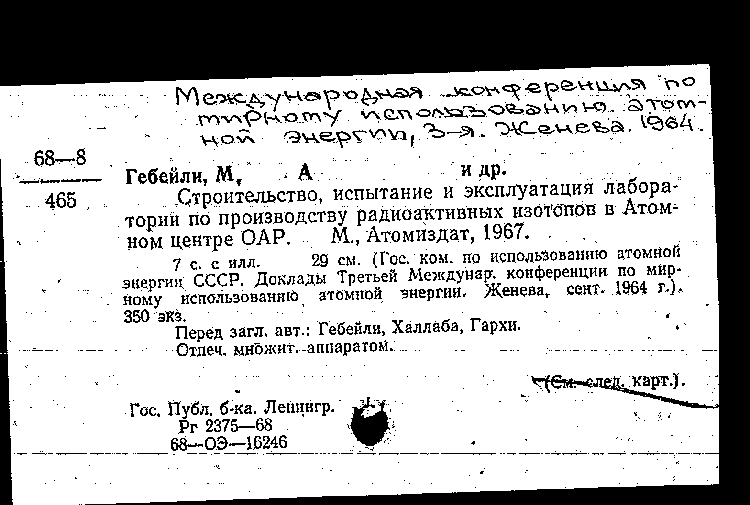 Международная конференция по
мирному использованию атом-
ной энергии, 3-я. Женева. 1964.
68—8
465
Гебейли, М. А и др.
Строительство, испытание и эксплуатация лабора-
тории по производству радиоактивных изотопов в Атом-
ном центре ОАР. М., Атомиздат, 1967.
7 с. с илл. 29 см. (Гос. ком. по использованию атомной
энергии СССР. Доклады Третьей Междунар. конференции по мир-
ному использованию атомной энергии. Женева, сент. 1964 г.).
350 экз.
Перед загл. авт.: Гебейли, Халлаба, Гархи.
Отпеч. множит. аппаратом.
(См. след. карт.).
Гос. Публ. б-ка. Ленингр.
Рг 2375—68
68—ОЭ—16246